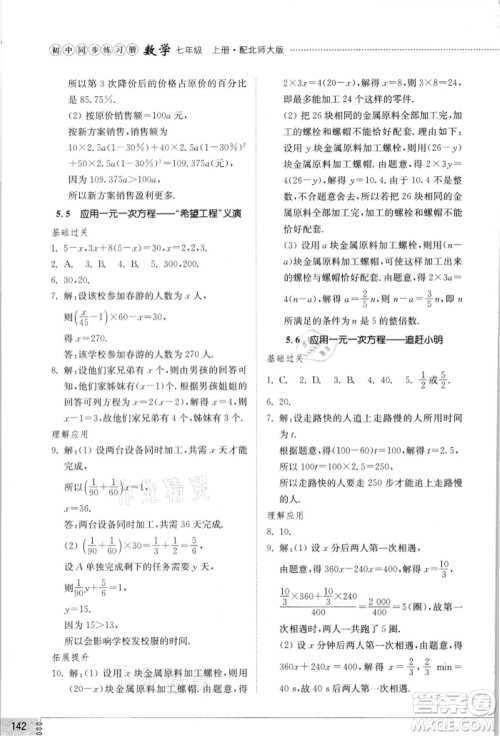 初中同步练习册 数学 七年级 上册·配北师大版
所以第 3 次降价后的价格占原价格的
85.75%.
(2) 按新方案销售,销售额为
10×2.5a(1-30%)+40×2.5a(1-30%)²
+50×2.5a(1-30%)³=109.375a.
因为 109.375a>100a,
所以新方案销售更盈利.
5.5 应用一元一次方程——“希望工程”义演
基础过关
1. 5-x,3x+(5-x)=9.
2. A. 3. D. 4. B. 5. 300,200.
6. 30,20.
7. 解:设该校参加春游的人数为 x,
则有(x/45-1)×60=x.
解得 x=180.
答:该学校参加春游的人数为 180.
8. 解:设他们家兄弟有 x 个,根据男孩的
回答可知姐妹有(x-1)个,根据女孩的
回答可列方程 2(x-1-1)=x.解得 x=
4,x-1=3.
因此他们家兄弟有 4 个,姊妹有 3 个.
理解应用
9. 解:(1) 设两台设备同时加工,共需 x
天才能完成.
所以(1/90+1/60)x=1.解得 x=36.
答:两台设备同时加工,共需 36 天才能
完成.
(2) (1/90+1/60)×30=5/6<1,
设 A 单独完成剩下任务需 y 天完成,
则 1/90 y+5/6=1,解得 y=15.
因为 15>13,
所以会影响学校发校服的时间.
拓展提升
10. 解:(1) 设 x 块金属原料加工螺栓,则
用(20-x)块金属原料加工螺帽.由题意,得
2×3x=4(20-x).解得 x=8.
所以 3×8=24.
答:最多能加工 24 个这样的零件.
(2) 若把 26 块相同的金属原料全部加
工完,为了使这批加工出的螺栓与螺
帽恰好配套,设用 y 块金属原料加工
螺栓,则用(26-y)块金属原料加工螺
帽.由题意,得 2×3y=4(26-y),解得
y=10.4.由于 10.4 不是整数,不合题
意,故把 26 块相同的金属原料全部加
工完,加工的螺栓和螺帽不恰好
配套.
(3) 设用 a 块金属原料加工螺栓,则
用(n-a)块金属原料加工螺帽,可使
这批加工出的螺栓与螺帽恰好配套.
由题意,得 2×3a=4(n-a),解得 a=
2/5 n,则 n-a=3/5 n,
所以 n 满足的条件是:n 是 5 的整
倍数.
5.6 应用一元一次方程——追赶小明
基础过关
1. C. 2. D. 3. A. 4. A. 5. 1/2 或 5/2.
6. 20.
7. 解:设走路快的人追上走路慢的人所用时间
为 t.
根据题意,得(100-60)t=100.解得 t=2.5.
所以 100t=100×2.5=250.
所以走路快的人走 250 步才能追上走路
慢的人.
理解应用
8. 10.
9. 解:(1) 设 x 分后两人第一次相遇,
由题意,得 360x-240x=400.解得 x=
10/3.
(10/3×360+10/3×240)÷400=2 000/400=5(圈).
答:10/3 min 后两人第一次相遇,此时两人
一共跑了 5 圈.
(2) 设 x 分后两人第一次相遇,由题意,
得 360x+240x=400.解得 x=2/3,2/3 min
142